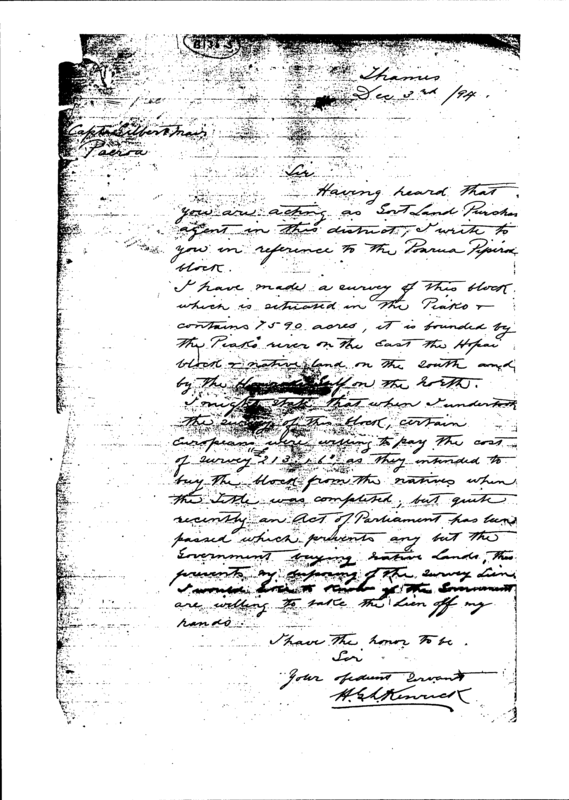 Thames
Dec 3rd /94.
Captn Gilbert Mair
Paeroa
Sir
Having heard that
you are acting as Govt Land Purchas
agent in this district, I write to
you in reference to the Poarua Pipiroa
block.
I have made a survey of this block
which is situated in the Piako &
contains 7590 acres, it is bounded by
the Piako river on the East the Hopai
block & native land on the South and
by the Hauraki Gulf on the North.
I might state that when I undertook
the survey of this block, certain
Europeans were willing to pay the cost
of survey £213.16 as they intended to
buy the block from the natives when
the Title was completed, but quite
recently an Act of Parliament has been
passed which prevents any but the
Government buying native Lands, this
prevents my disposing of the survey Lien
I would like to know if the Government
are willing to take the Lien off my
hands.
I have the honor to be.
Sir
Your obedient Servant
H. G. L. Kenrick